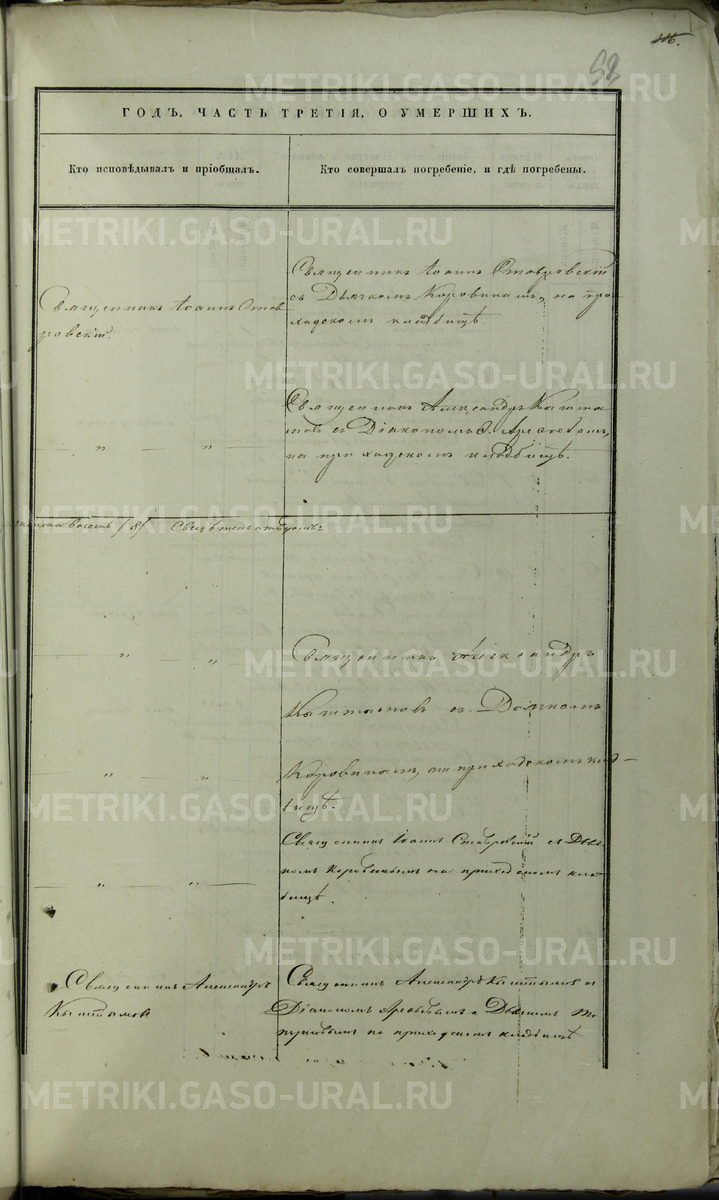 116.
52
ГОДЪ, ЧАСТЬ ТРЕТІЯ, О УМЕРШИХЪ.
Кто исповѣдывалъ и пріобщалъ.
Кто совершалъ погребеніе, и гдѣ погребены.
Священникъ Іоаннъ Став
ровскій.
Священникъ Іоаннъ Ставровскій
съ Дьячкомъ Коровинымъ, на при
ходскомъ кладбищѣ.
— „ — „ —
Священникъ Александръ Кышты
мовъ съ Діакономъ
на приходскомъ кладбищѣ.
восемь /8/ Свидѣтельствуютъ:
— „ — „ —
Священникъ Александръ
Кыштымовъ съ Дьячкомъ
— „ — „ —
Коровинымъ, на приходскомъ клад-
бищѣ.
— „ — „ —
Священникъ Іоаннъ Ставровскій съ Дьяч
комъ Коровинымъ на приходскомъ клад
бищѣ.
Священникъ Александръ
Кыштымовъ
Священникъ Александръ Кыштымовъ съ
Діакономъ и Дьячкомъ
на приходскомъ кладбищѣ
METRIKI.GASO-URAL.RU